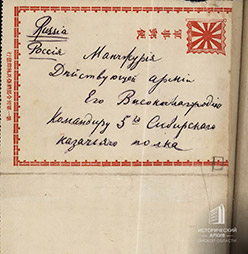 Russia
Россія
軍事郵便
Манжурія
Действующей арміи
Его Высокоблагородію
Командиру 5го Сибирскаго
казачьяго полка
ИСТОРИЧЕСКИЙ
АРХИВ
ОМСКОЙ ОБЛАСТИ